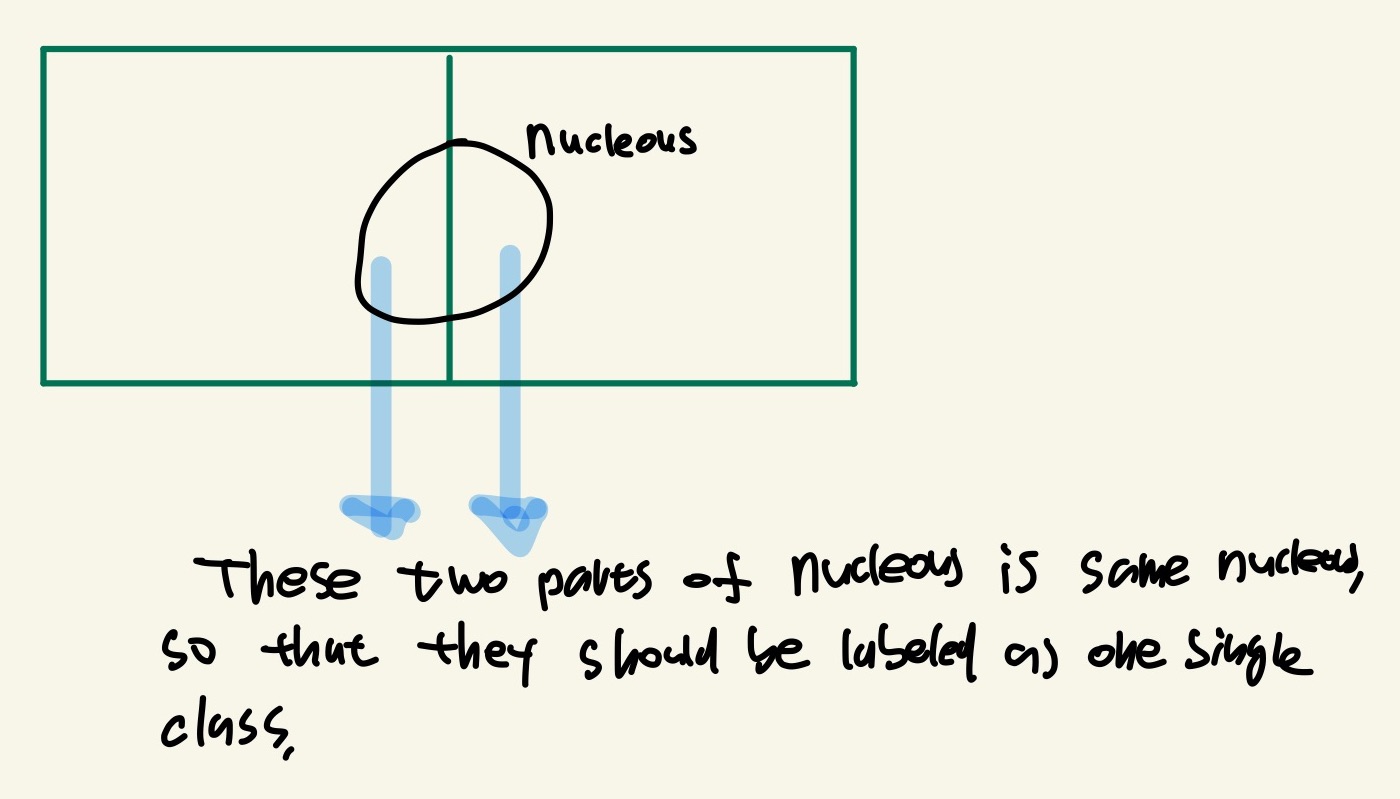 nucleous
These two parts of nucleous is same nucleous,
so that they should be labeled as one single
class,